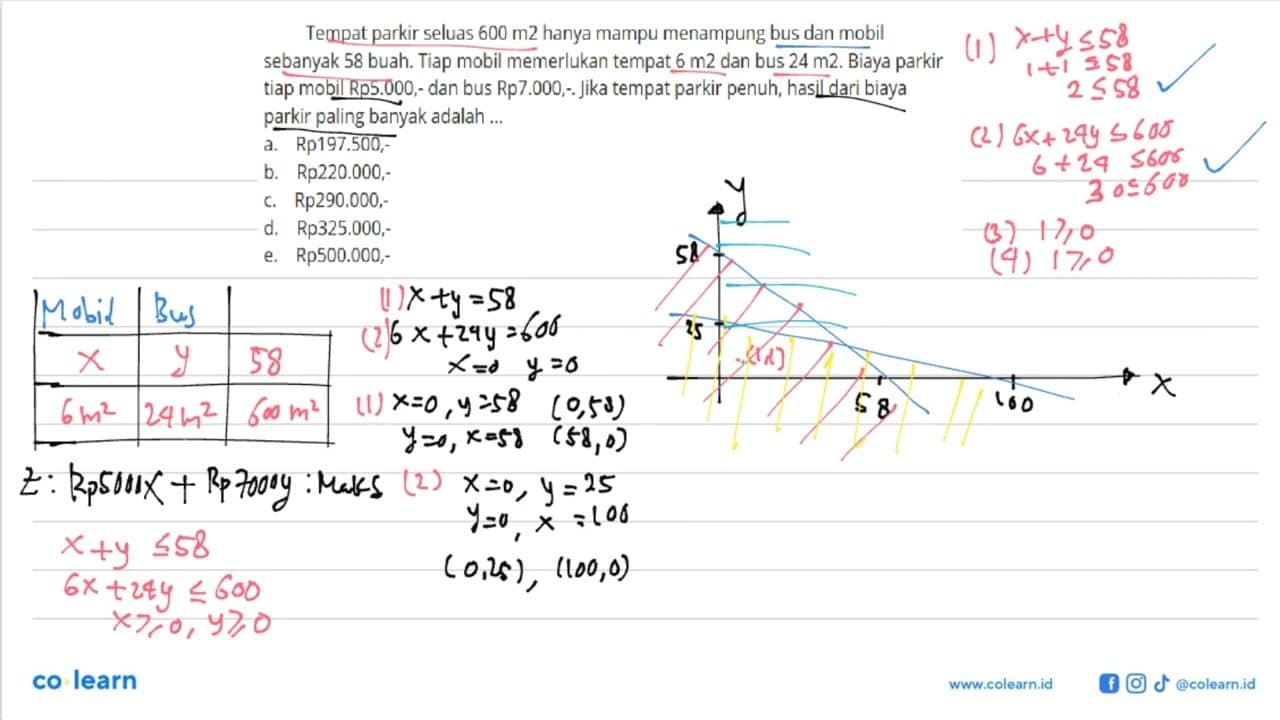 Tempat parkir seluas 600 m2 hanya mampu menampung bus dan mobil
sebanyak 58 buah. Tiap mobil memerlukan tempat 6 m2 dan bus 24 m2. Biaya parkir
tiap mobil Rp5.000,- dan bus Rp7.000,-. Jika tempat parkir penuh, hasil dari biaya
parkir paling banyak adalah ...
a. Rp197.500,-
b. Rp220.000,-
c. Rp290.000,-
d. Rp325.000,-
e. Rp500.000,-
(1) x+y ≤ 58
1+1 ≤ 58
2 ≤ 58
(2) 6x + 24y ≤ 600
6 + 24 ≤ 600
30 ≤ 600
(3) 1 ≥ 0
(4) 1 ≥ 0
Mobil Bus
x y 58
6 m² 24 m² 600 m²
Z : Rp5000x + Rp7000y : Maks
x + y ≤ 58
6x + 24y ≤ 600
x ≥ 0, y ≥ 0
(1) x + y = 58
(2) 6x + 24y = 600
x = 0 y = 0
(1) x = 0, y = 58 (0,58)
y = 0, x = 58 (58,0)
(2) x = 0, y = 25
y = 0, x = 100
(0,25), (100,0)
y
58
25
(1,1)
58
100
x
co learn
www.colearn.id
@colearn.id